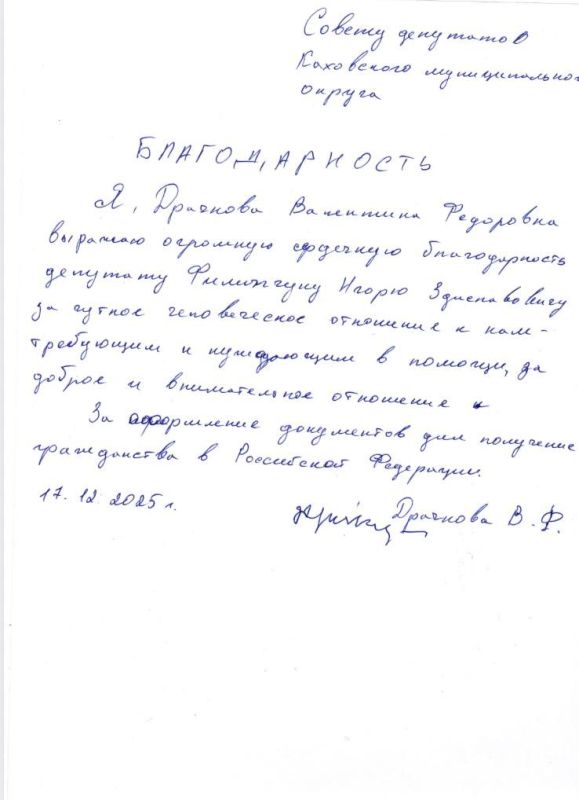 Совету депутатов
Каховского муниципального
округа
БЛАГОДАРНОСТЬ
Я, Драчкова Валентина Федоровна
выражаю огромную сердечную благодарность
депутату Филипчуку Игорю Здиславовичу
за чуткое человеческое отношение к нам-
требующим и нуждающим в помощи, за
доброе и внимательное отношение
За оформление документов для получение
гражданства в Российской Федерации.
17.12.2025 г.
Драчкова В.Ф.